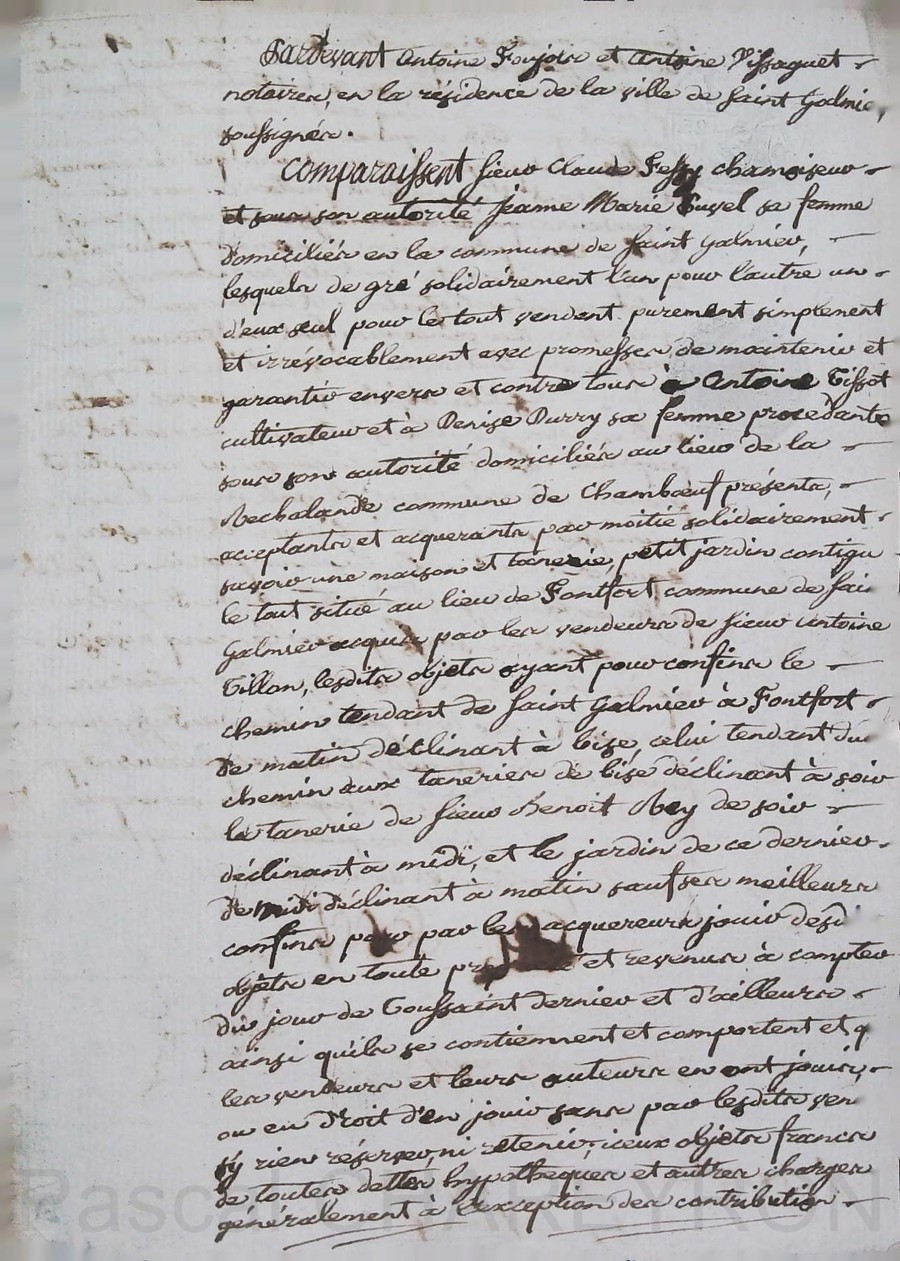 Pardevant antoine Foujols et antoine Vissaguet
notaires, en la résidence de la ville de saint Galmie,
soussignés.
Comparaissent sieur Claude Fessy chamoiseur
et sous son autorité Jeanne Marie sa femme
domiciliés en la commune de saint Galmier,
lesquels de gré solidairement l'un pour l'autre un
d'eux seul pour le tout vendent purement simplement
et irrévocablement avec promesses de maintenir et
garantir envers et contre tous à antoine Tissot
cultivateur et à Denise Durry sa femme procédante
sous son autorité domiciliés au lieu de la
Rechalande commune de Chambœuf présents,
acceptants et acquerants par moitié solidairement
savoir une maison et tanerie, petit jardin contigu
le tout situé au lieu de Fontfort commune de sai
Galmier acquis par les vendeurs de sieur antoine
Tillon, lesdits objets ayant pour confins le
chemin tendant de saint Galmier à Fontfort
de matin déclinant à bize, celui tendant du
chemin aux taneries de bise déclinant à soir
la tanerie de sieur Benoit Rey de soir
déclinant à midi, et le jardin de ce dernier
de midi déclinant à matin sauf ses meilleurs
confins par les acquereurs jouir desd
objets en toute et revenus à compter
du jour de Toussaint dernier et d'ailleurs
ainsi quils se contiennent et comportent et q
les vendeurs et leurs auteurs en ont jouis,
ou eu droit d'en jouir sans par lesdits ven
s'y rien réserver, ni retenir, iceux objets francs
de toutes dettes hypotheques et autres charges
généralement à l'exception des contribution